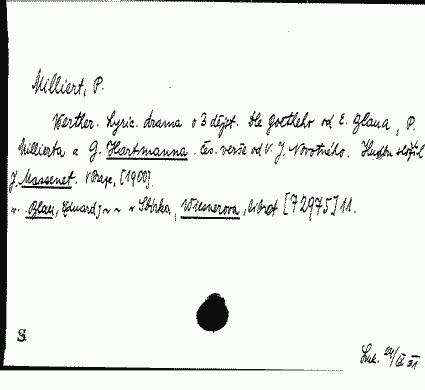 Milliert, P.
Werther. Lyric. drama o 3 dějst. Dle Goetheho od E. Blaua, P.
Millierta a G. Hartmanna. Čes. verše od V. J. Novotného. Hudbu složil
J. Massenet. V Praze, [1900].
Blau, Eduard; Sbírka, Wiesnerova, libret [72975] 11.
S
Luk. 24/IX 31